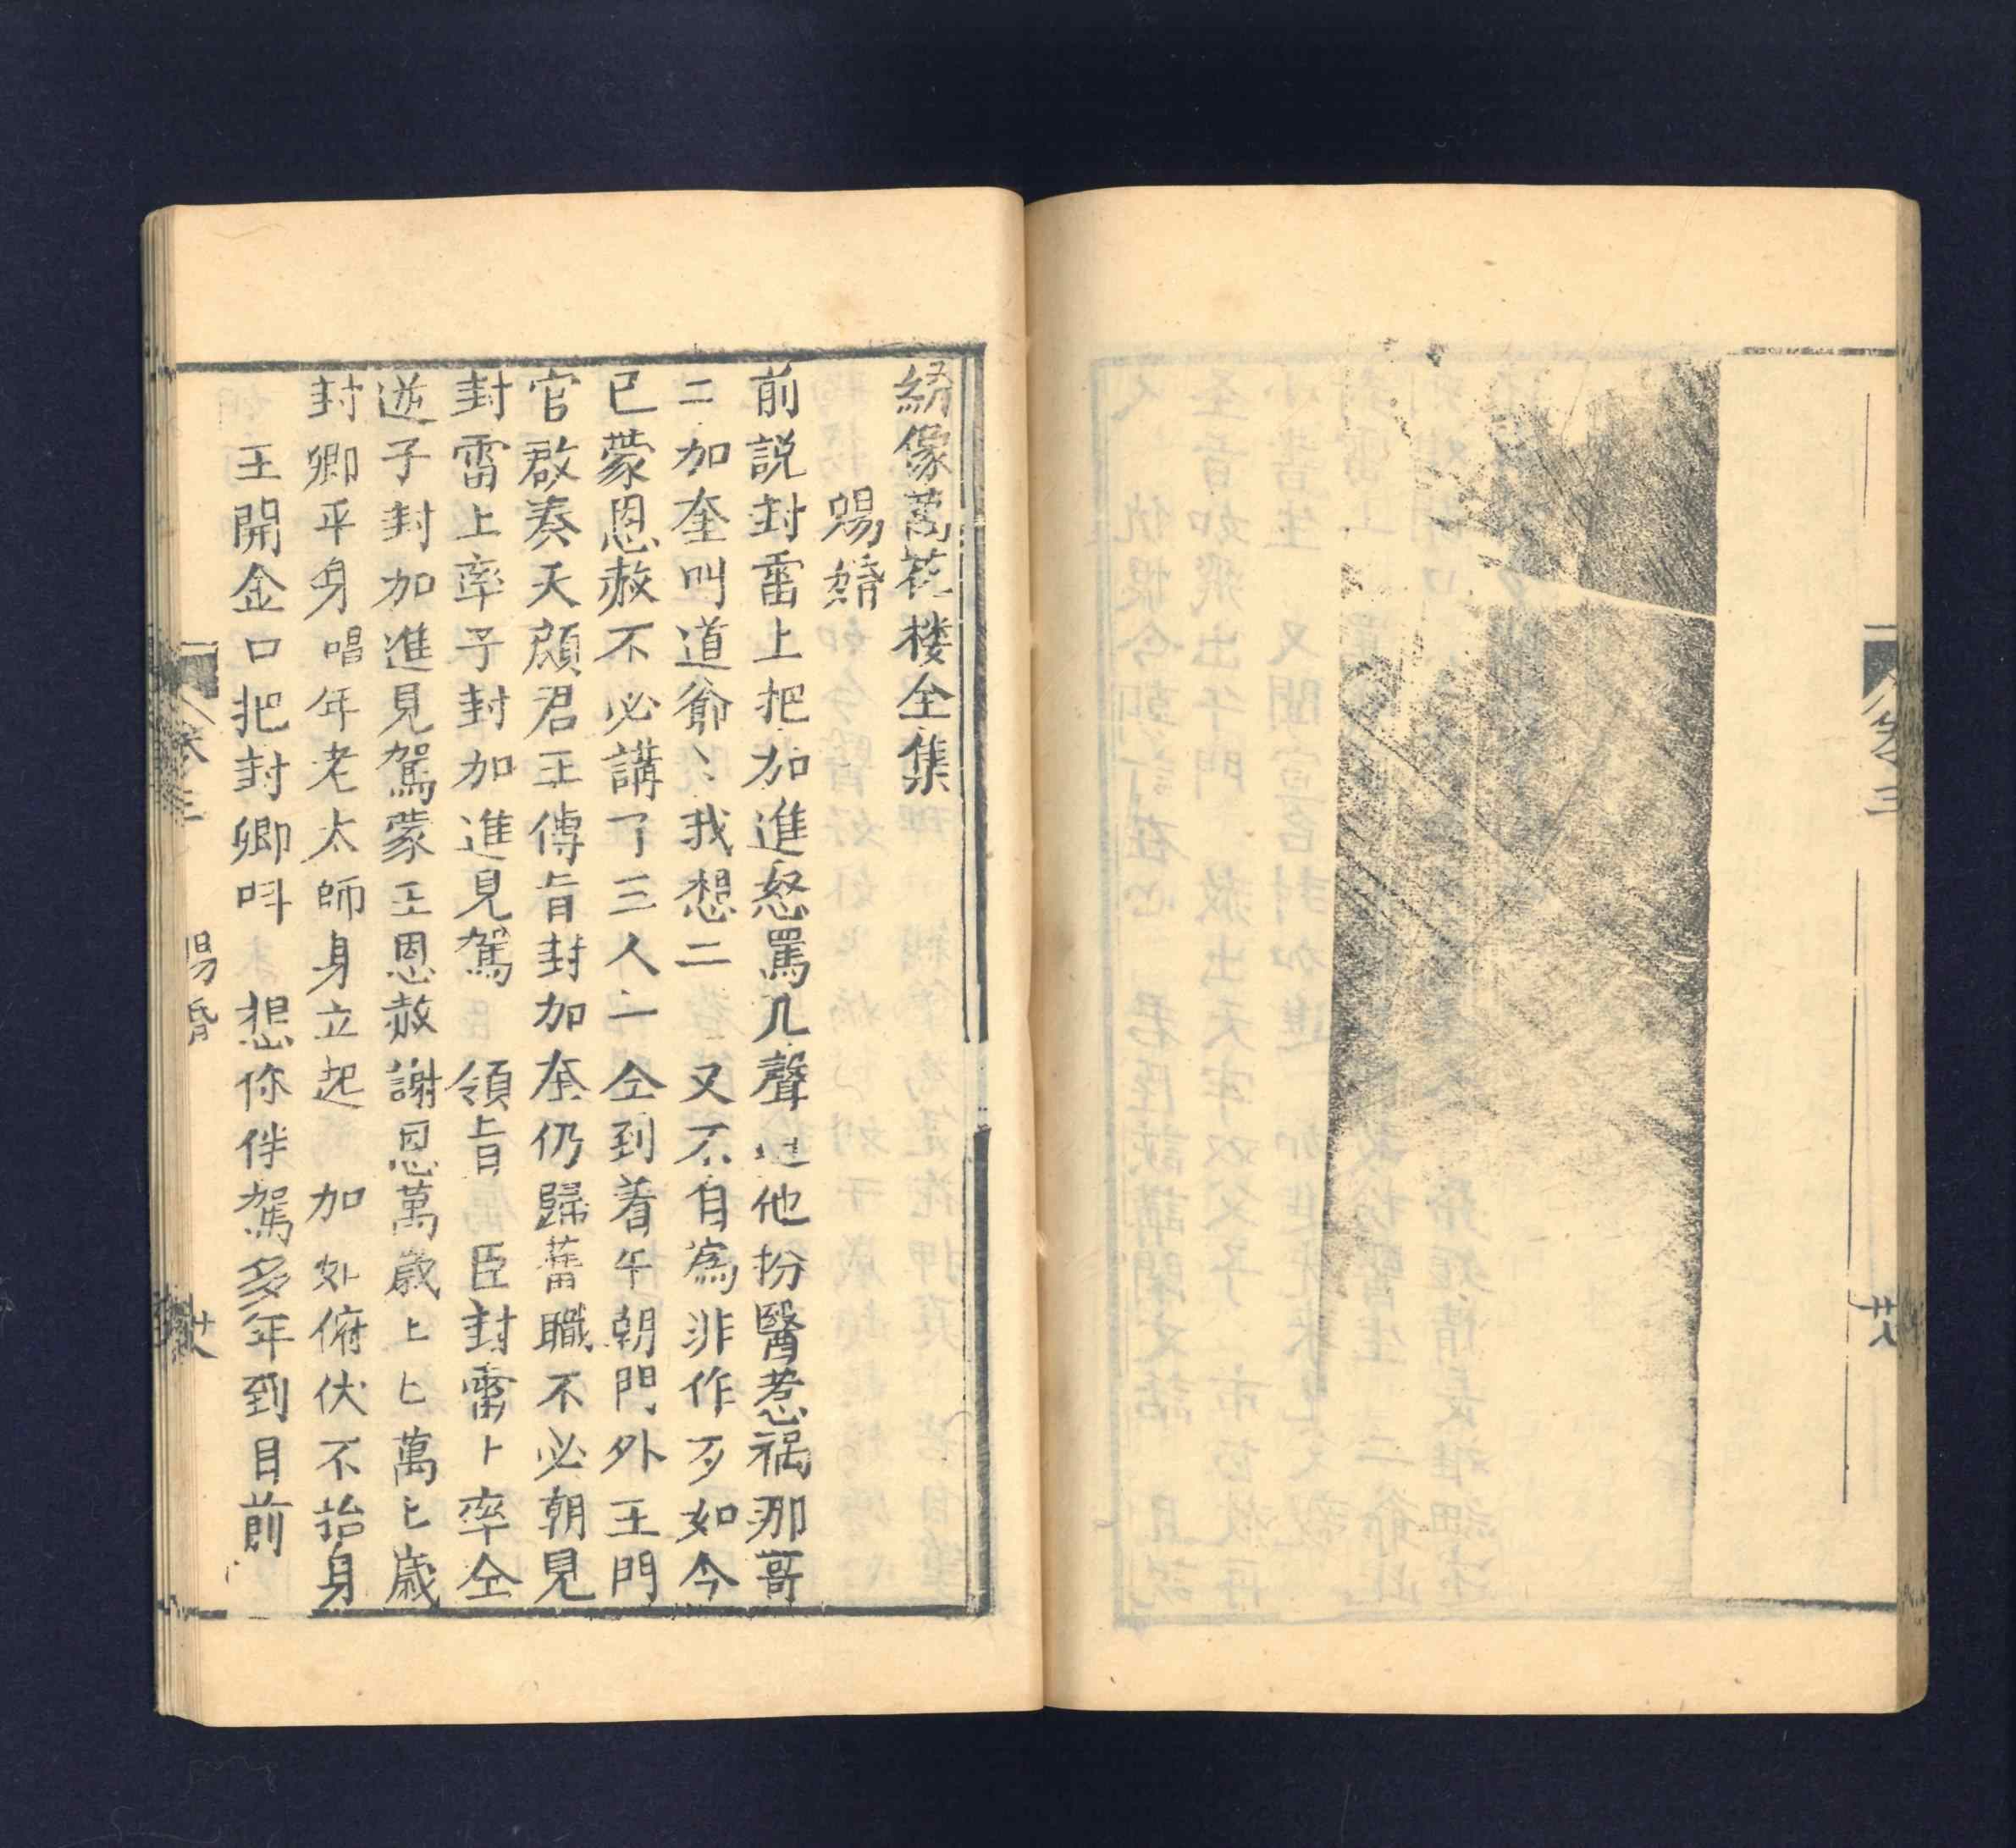 綉像萬花楼全集
賜婚
前説封雷上把加進怒罵几聲 他扮醫惹禍那哥
二加奎叫道爺〻我想二 又不自為非作歹如今
已蒙恩赦不必講了三人一仝到着午朝門外王門
官啟奏天顔君王傳旨封加奎仍歸舊職不必朝見
封雷上率子封加進見駕 領旨 臣封雷上率仝
逆子封加進見駕蒙王恩赦謝恩萬歲上匕萬匕歲
封卿平身唱年老太師身立起 加 俯伏不抬身
王開金口把封卿呌 想你伴駕多年到目前
卷三
賜婚
卷三